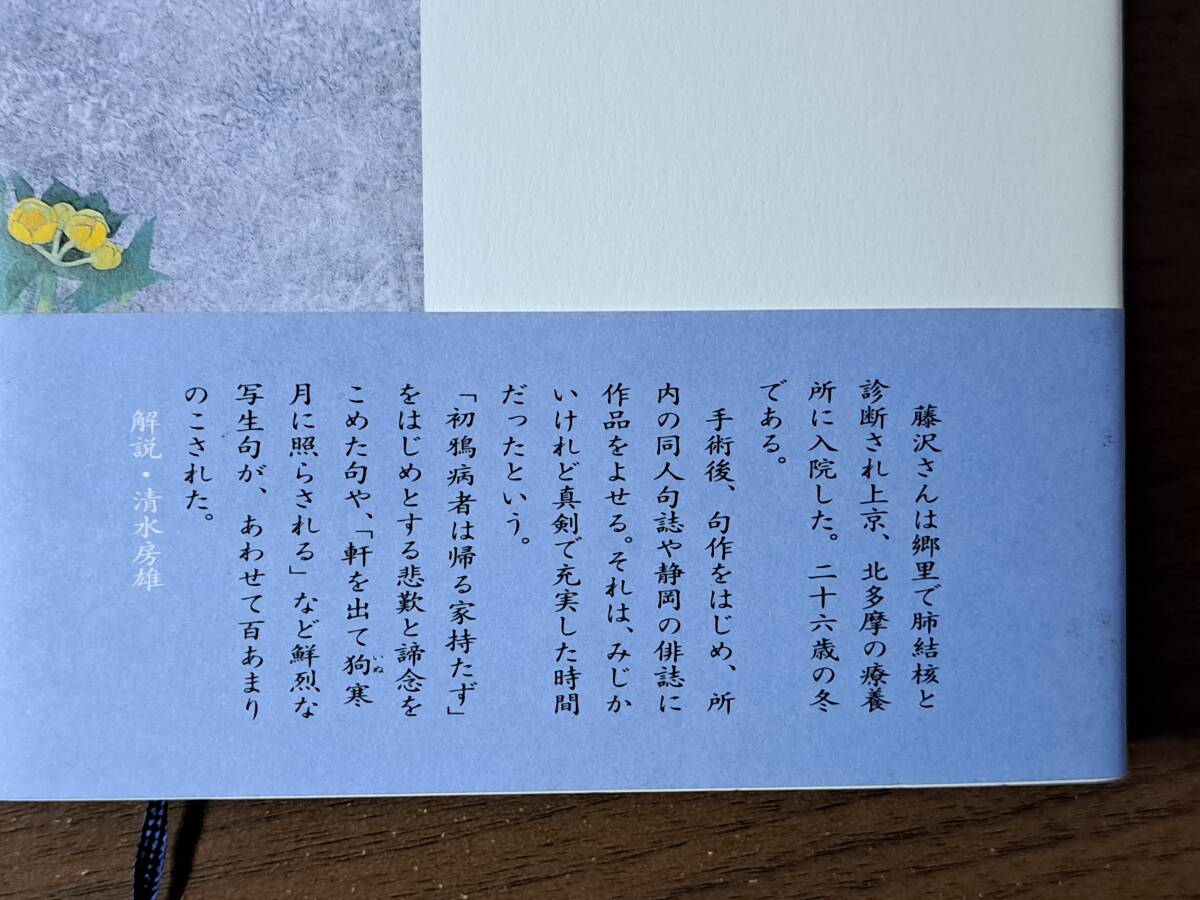 藤沢さんは郷里で肺結核と
診断され上京、北多摩の療養
所に入院した。二十六歳の冬
である。
手術後、句作をはじめ、所
内の同人句誌や静岡の俳誌に
作品をよせる。それは、みじか
いけれど真剣で充実した時間
だったという。
「初鴉病者は帰る家持たず」
をはじめとする悲歎と諦念を
こめた句や、「軒を出て狗寒
いぬ
月に照らされる」など鮮烈な
写生句が、あわせて百あまり
のこされた。
解説・清水房雄